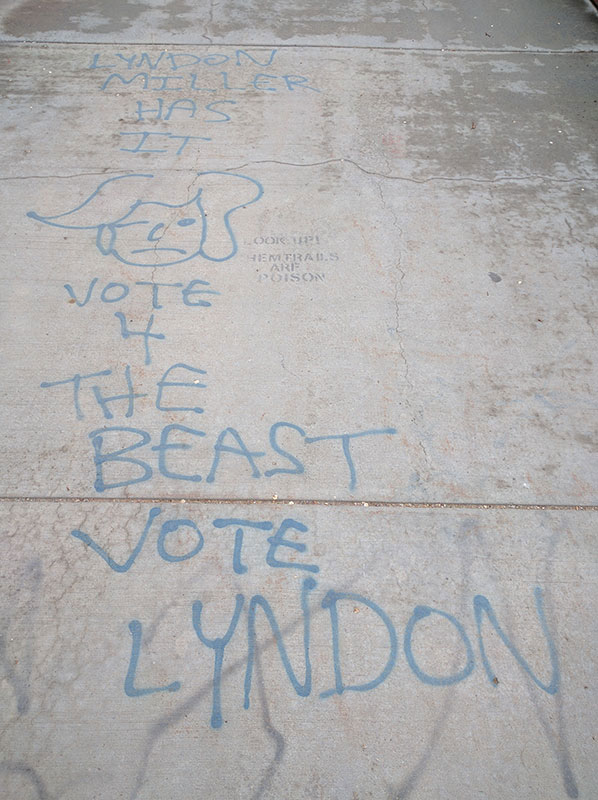 LYNDON
MILLER
HAS
IT
LOOK UP!
CHEMTRAILS
ARE
POISON
VOTE
4
THE
BEAST
VOTE
LYNDON